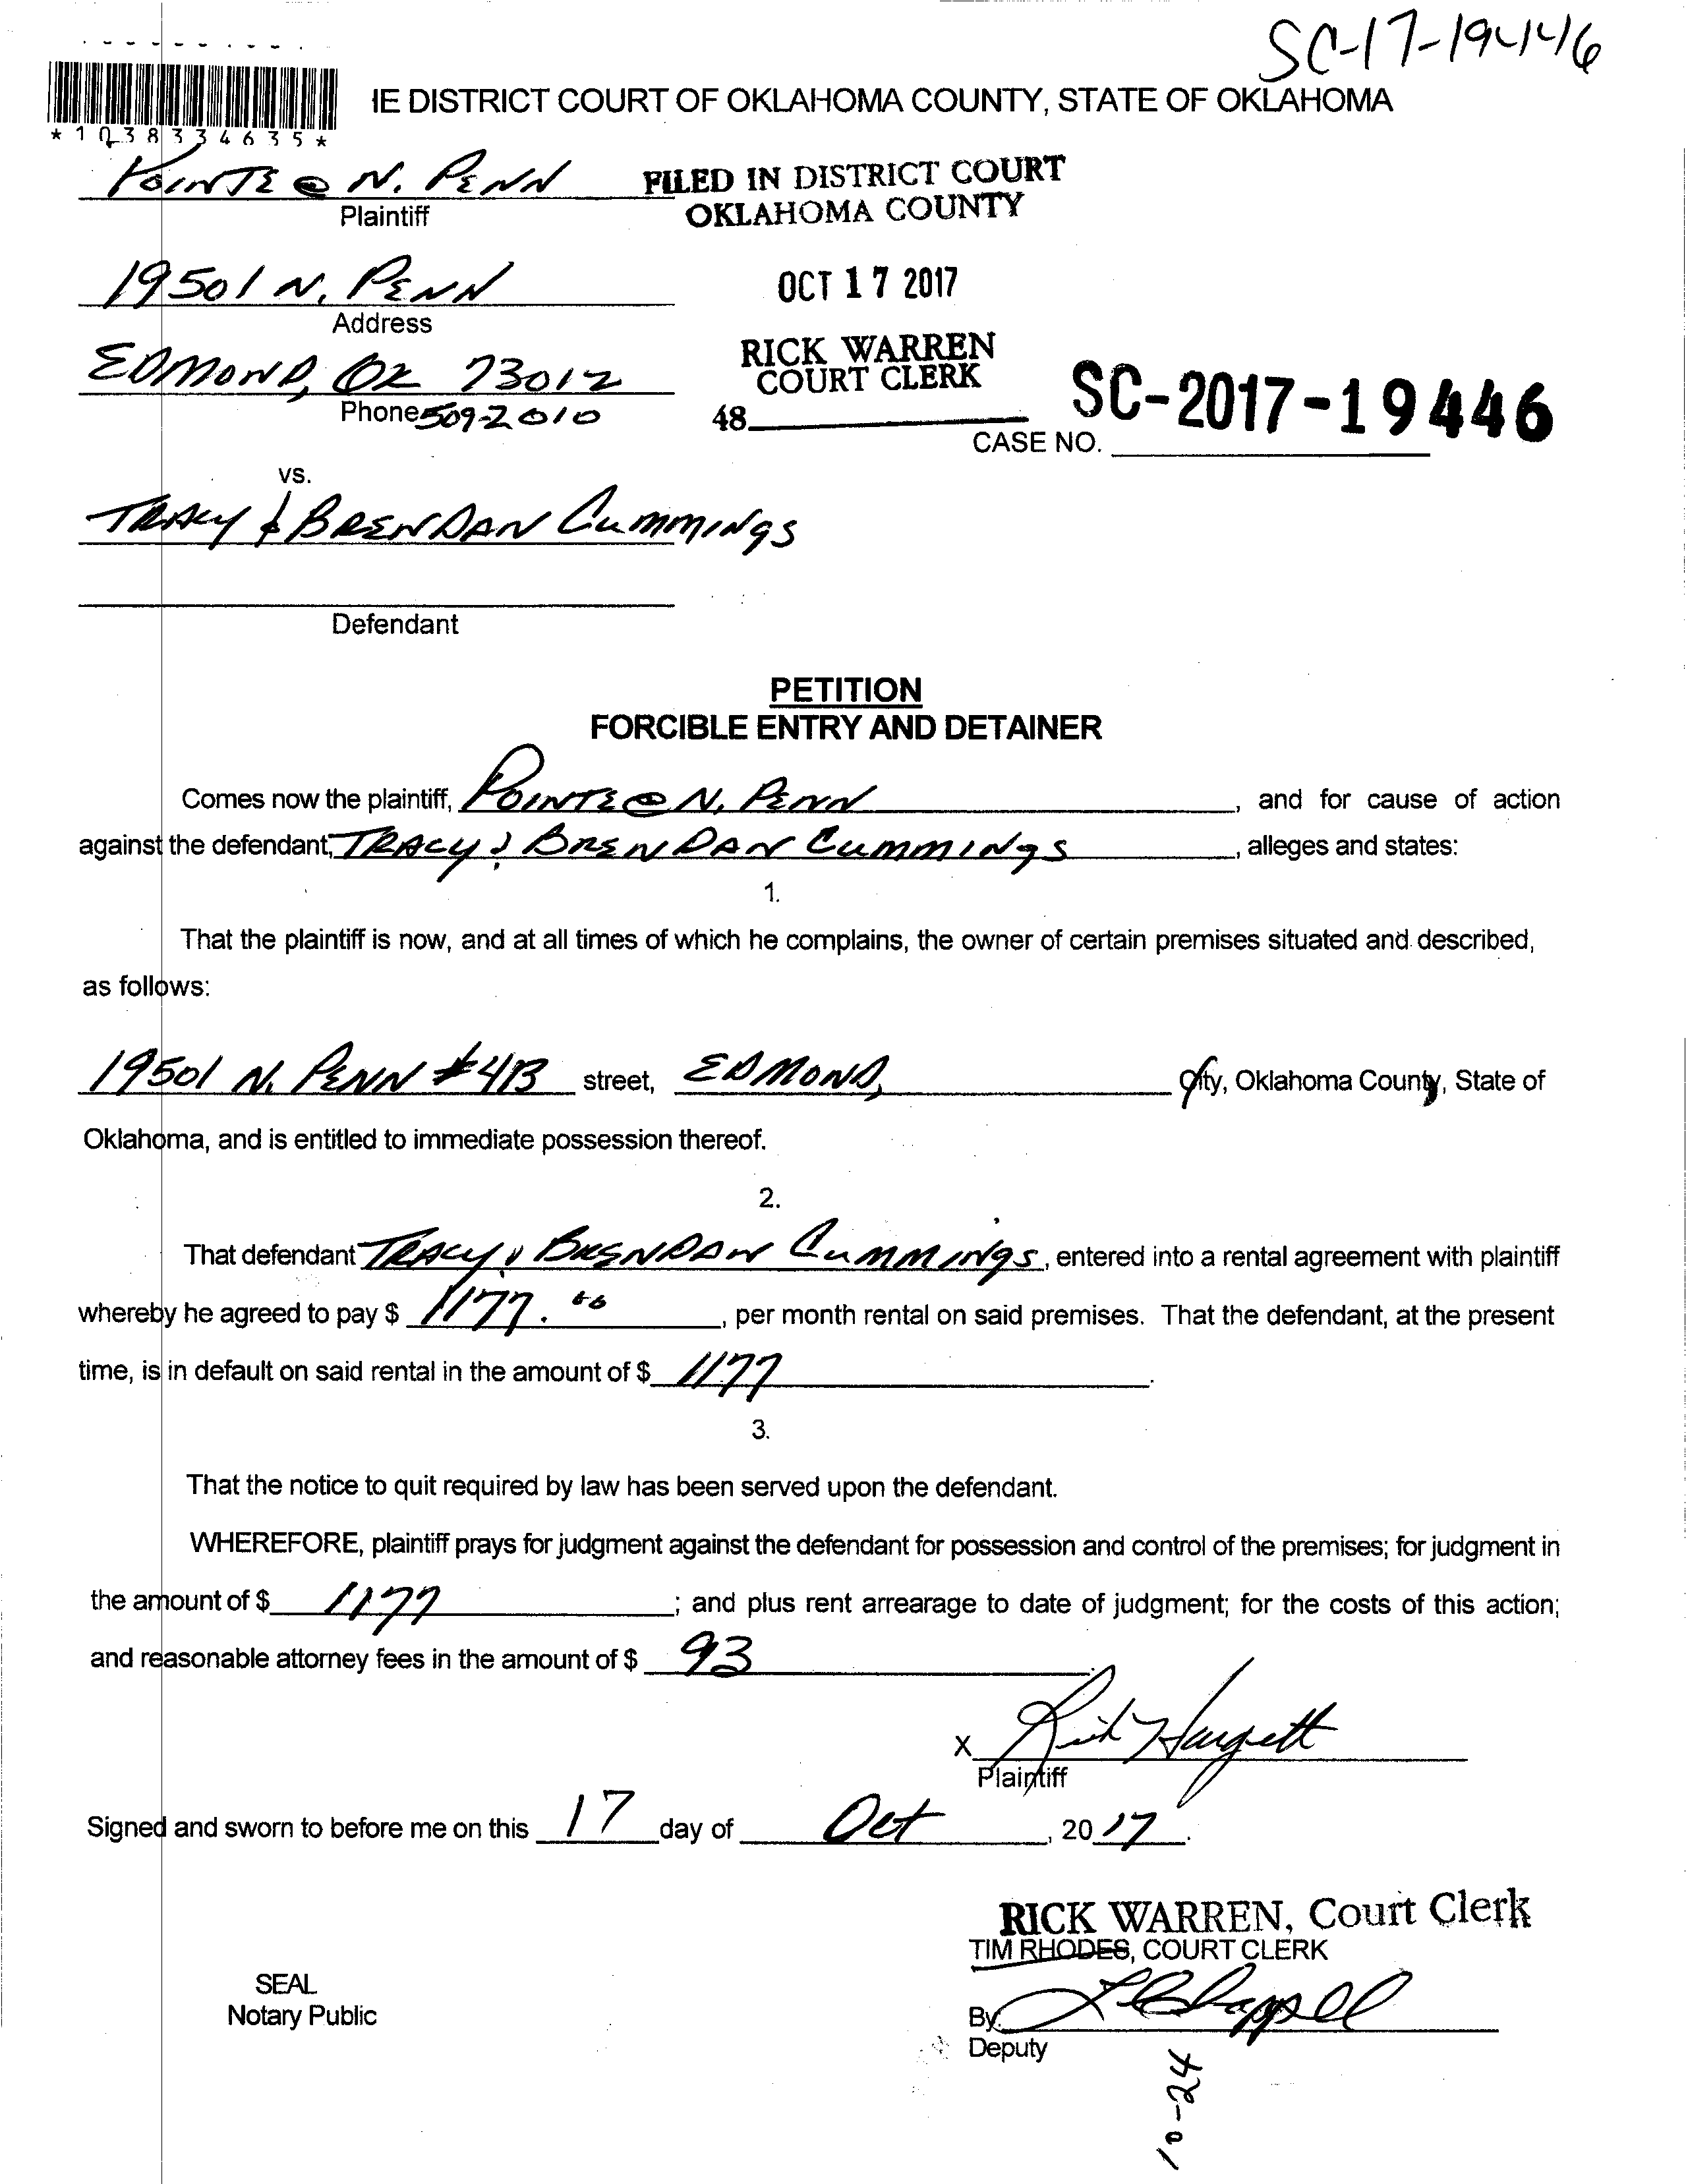 SC-17-19446
IE DISTRICT COURT OF OKLAHOMA COUNTY, STATE OF OKLAHOMA
* 1 0 3 8 3 3 4 6 3 5 *
POINTE @ N. PENN
Plaintiff
FILED IN DISTRICT COURT
OKLAHOMA COUNTY
19501 N. PENN
Address
OCT 17 2017
EDMOND, OK 73012
Phone 509-2010
RICK WARREN
COURT CLERK
48
SC-2017-19446
CASE NO.
vs.
TRACY & BRENDAN CUMMINGS
Defendant
PETITION
FORCIBLE ENTRY AND DETAINER
Comes now the plaintiff, POINTE @ N. PENN, and for cause of action
against the defendant, TRACY & BRENDAN CUMMINGS, alleges and states:
1.
That the plaintiff is now, and at all times of which he complains, the owner of certain premises situated and described,
as follows:
19501 N. PENN #413 street, EDMOND, City, Oklahoma County, State of
Oklahoma, and is entitled to immediate possession thereof.
2.
That defendant TRACY & BRENDAN CUMMINGS, entered into a rental agreement with plaintiff
whereby he agreed to pay $ 1177.00, per month rental on said premises. That the defendant, at the present
time, is in default on said rental in the amount of $ 1177.
3.
That the notice to quit required by law has been served upon the defendant.
WHEREFORE, plaintiff prays for judgment against the defendant for possession and control of the premises; for judgment in
the amount of $ 1177; and plus rent arrearage to date of judgment; for the costs of this action;
and reasonable attorney fees in the amount of $ 93.
X Rick Hargett
Plaintiff
Signed and sworn to before me on this 17 day of Oct, 2017.
RICK WARREN, Court Clerk
TIM RHODES, COURT CLERK
SEAL
Notary Public
By: L Chappell
Deputy
10-24